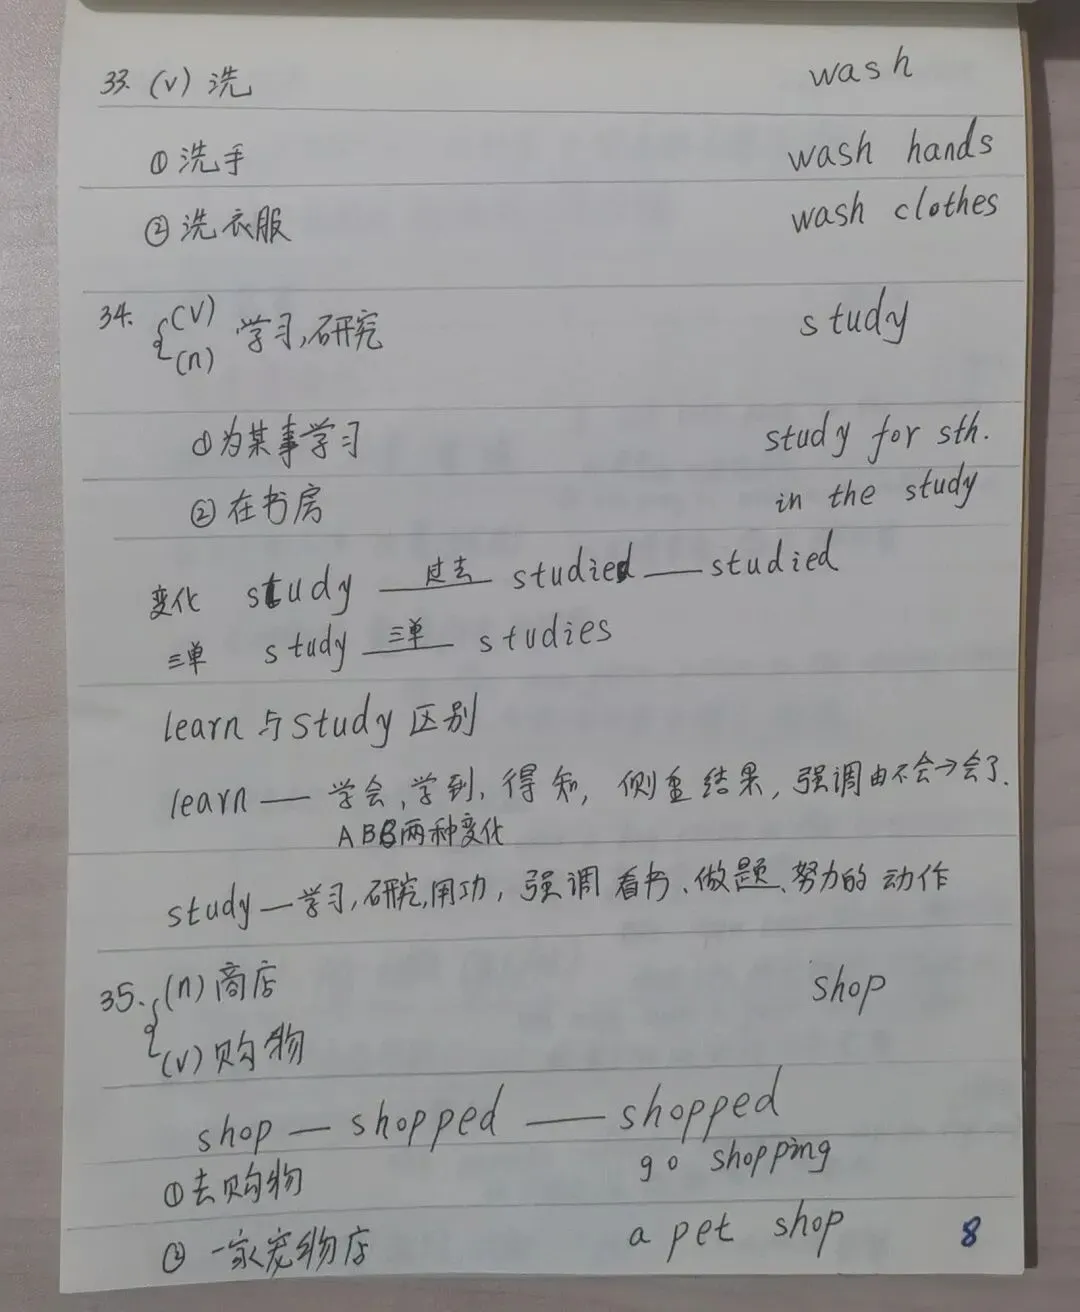 33. (v) 洗 wash
① 洗手 wash hands
② 洗衣服 wash clothes
34. {(v) (n) 学习,研究 study
① 为某事学习 study for sth.
② 在书房 in the study
变化 study 过去 studied — studied
三单 study 三单 studies
learn 与 study 区别
learn — 学会,学到,得知, 侧重结果, 强调由不会→会了.
ABB两种变化
study — 学习,研究,用功, 强调 看书、做题、努力的 动作
35. {(n) 商店 shop
(v) 购物
shop — shopped — shopped
① 去购物 go shopping
② 一家宠物店 a pet shop
8